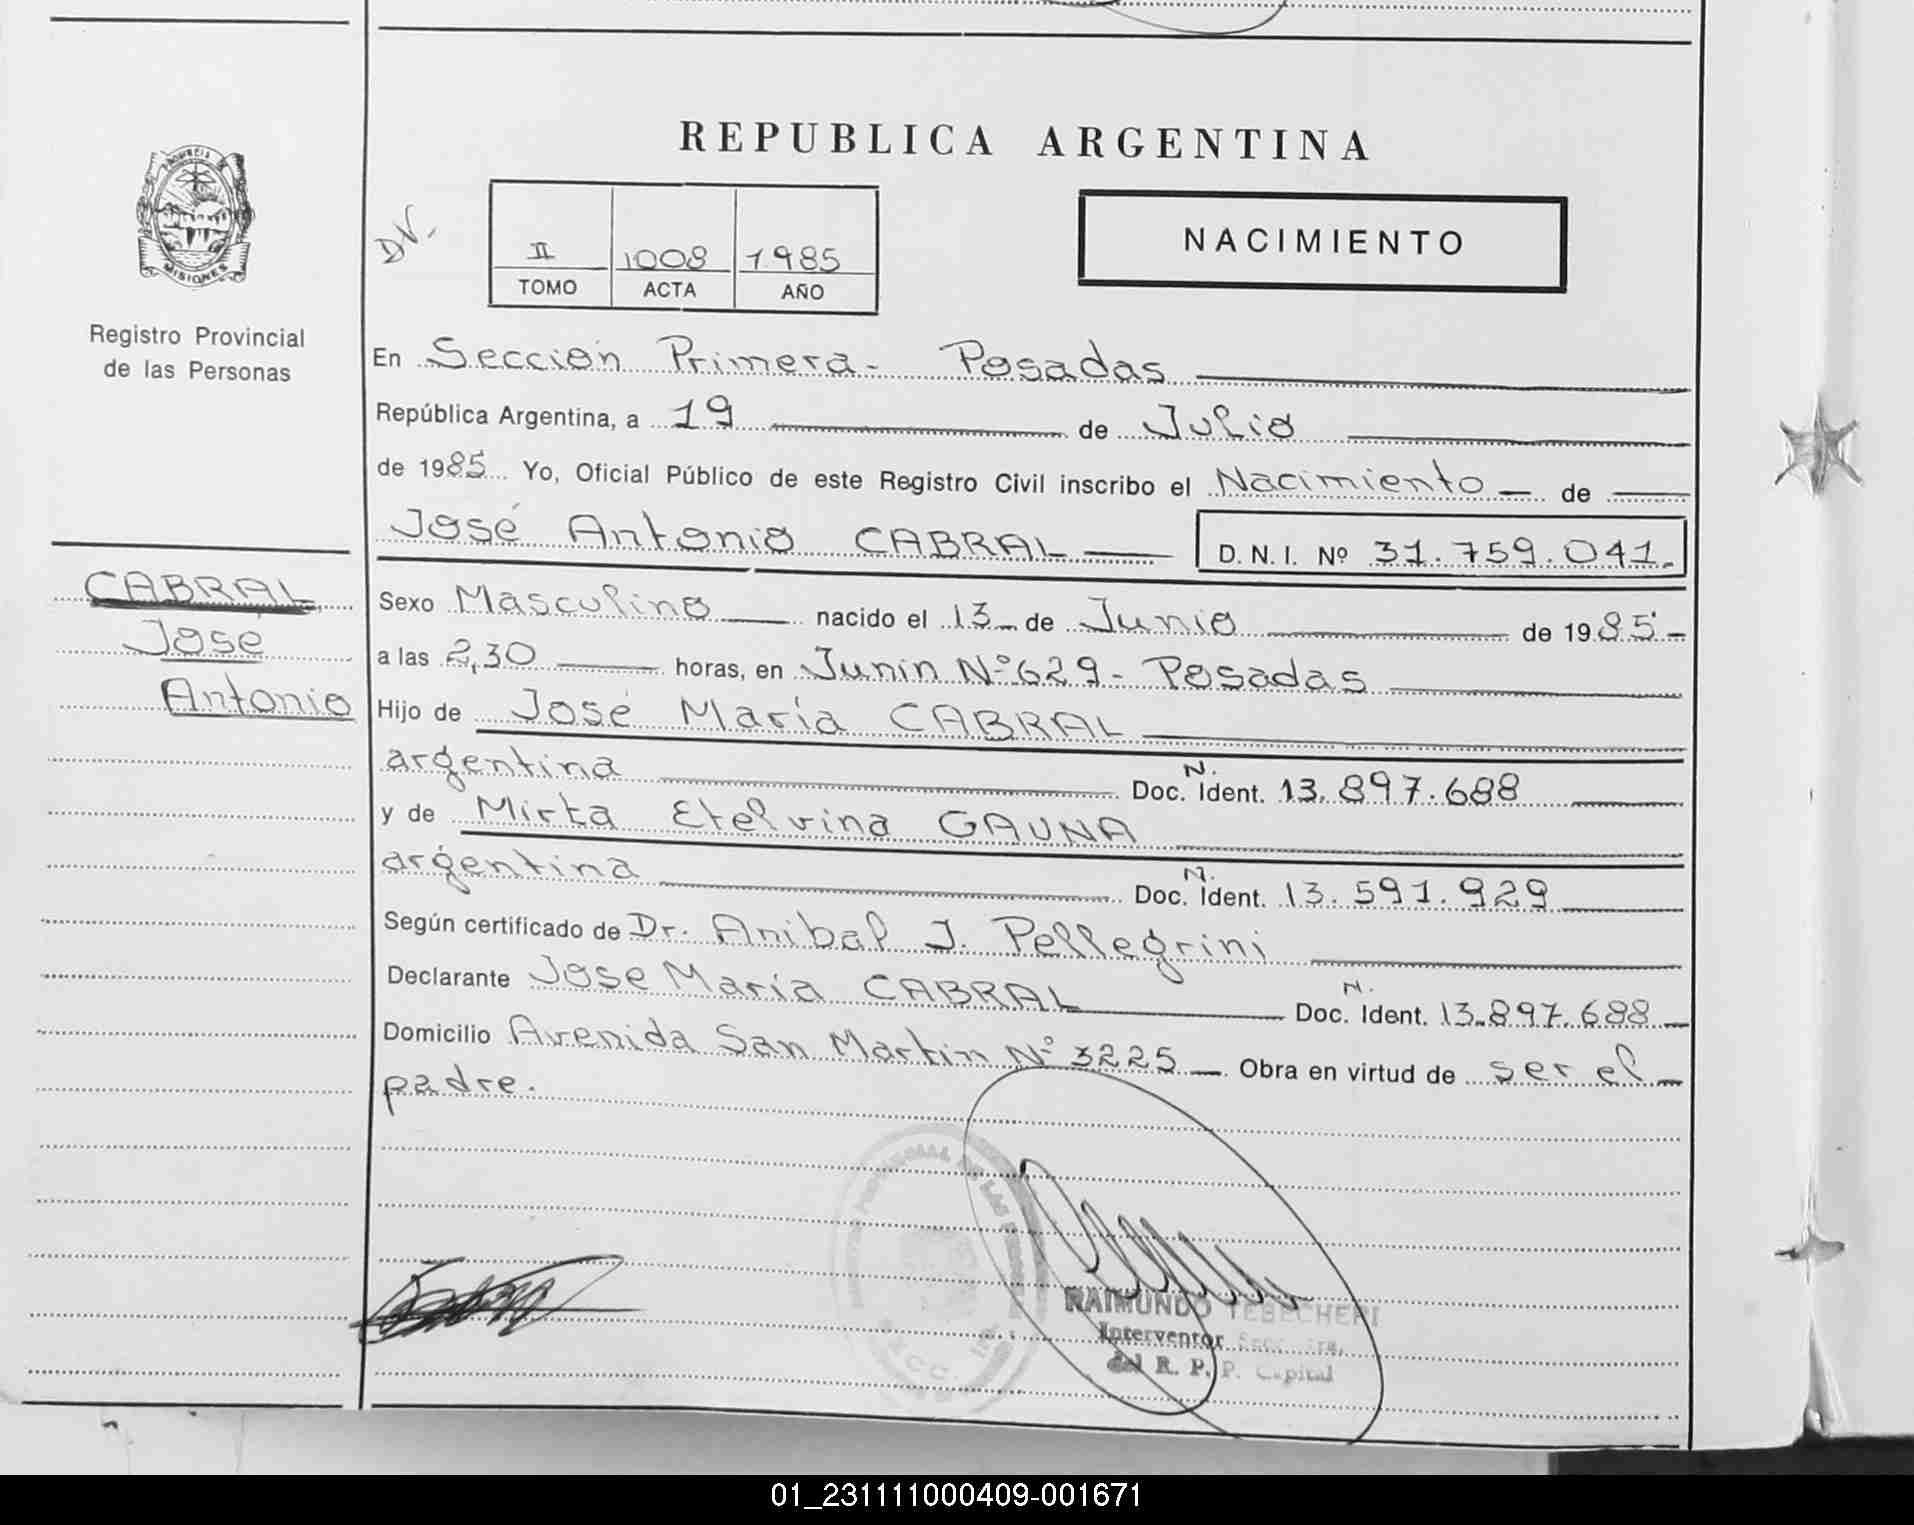 REPUBLICA ARGENTINA
PROVINCIA DE
MISIONES
Registro Provincial
de las Personas
DV.
II 1008 1985
TOMO ACTA AÑO
NACIMIENTO
En Sección Primera- Posadas
República Argentina, a 19 de Julio
de 1985 Yo, Oficial Público de este Registro Civil inscribo el Nacimiento de
José Antonio CABRAL D.N.I. Nº 31.759.041.
CABRAL
José
Antonio
Sexo Masculino nacido el 13 de Junio de 1985
a las 2,30 horas, en Junin Nº 629- Posadas
Hijo de José María CABRAL
argentina Doc. N. Ident. 13.897.688
y de Mirta Etelvina GAUNA
argentina Doc. N. Ident. 13.591.929
Según certificado de Dr. Anibal J. Pellegrini
Declarante Jose María CABRAL Doc. N. Ident. 13.897.688
Domicilio Avenida San Martin Nº 3225 Obra en virtud de ser el
padre.
RAIMUNDO TEBECHERI
Interventor
del R. P. P. Capital
01_231111000409-001671